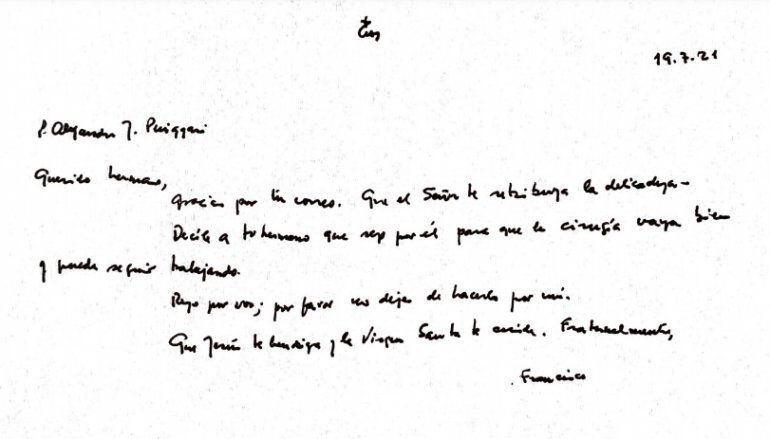 19.7.21
P. Alejandro J. Puiggari
Querido hermano,
gracias por tu correo. Que el Señor te retribuya la delicadeza.
Decile a tu hermano que rezo por él para que la cirugía vaya bien
y pueda seguir trabajando.
Rezo por vos; por favor no dejes de hacerlo por mí.
Que Jesús te bendiga y la Virgen Santa te cuide. Fraternalmente,
Francisco